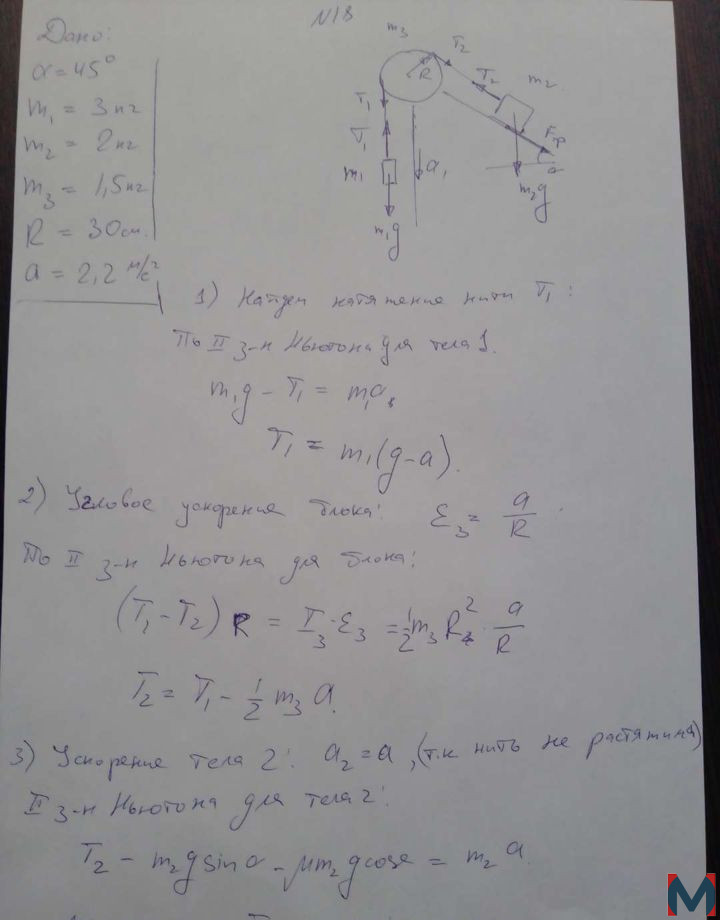 N18
Дано:
α = 45°
m₁ = 3 кг
m₂ = 2 кг
m₃ = 1,5 кг
R = 30 см.
a = 2,2 м/с²
m₃
T₂
R
T₂
m₂
T₁
T₁
m₁
a₁
m₁g
Fтр
α
m₂g
1) Найдем натяжение нити T₁:
По II з-н Ньютона для тела 1.
m₁g - T₁ = m₁a,
T₁ = m₁(g-a).
2) Угловое ускорение блока: ε₃ = a/R
По II з-н Ньютона для блока:
(T₁ - T₂) R = I₃·ε₃ = ½m₃R² · a/R
T₂ = T₁ - ½ m₃ a.
3) Ускорение тела 2: a₂ = a, (т.к нить не растяжима)
II з-н Ньютона для тела 2:
T₂ - m₂g sinα - μm₂g cosα = m₂ a.
M